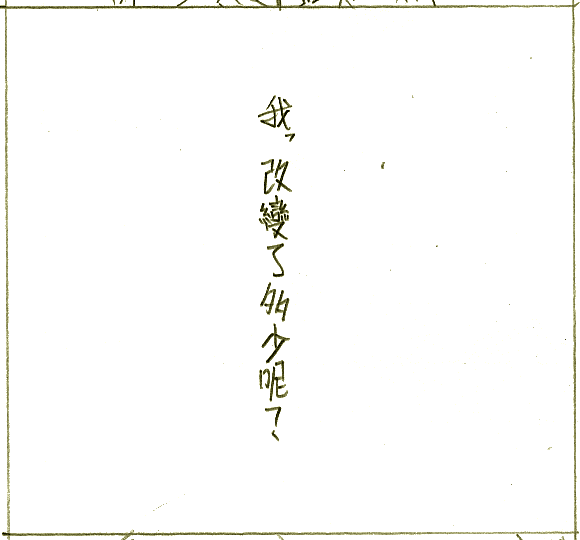 我，改變了多少呢？